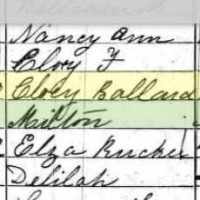 Nancy Ann
Clory F
Cloey Ballard
Milton
Elza Rucker
Delilah